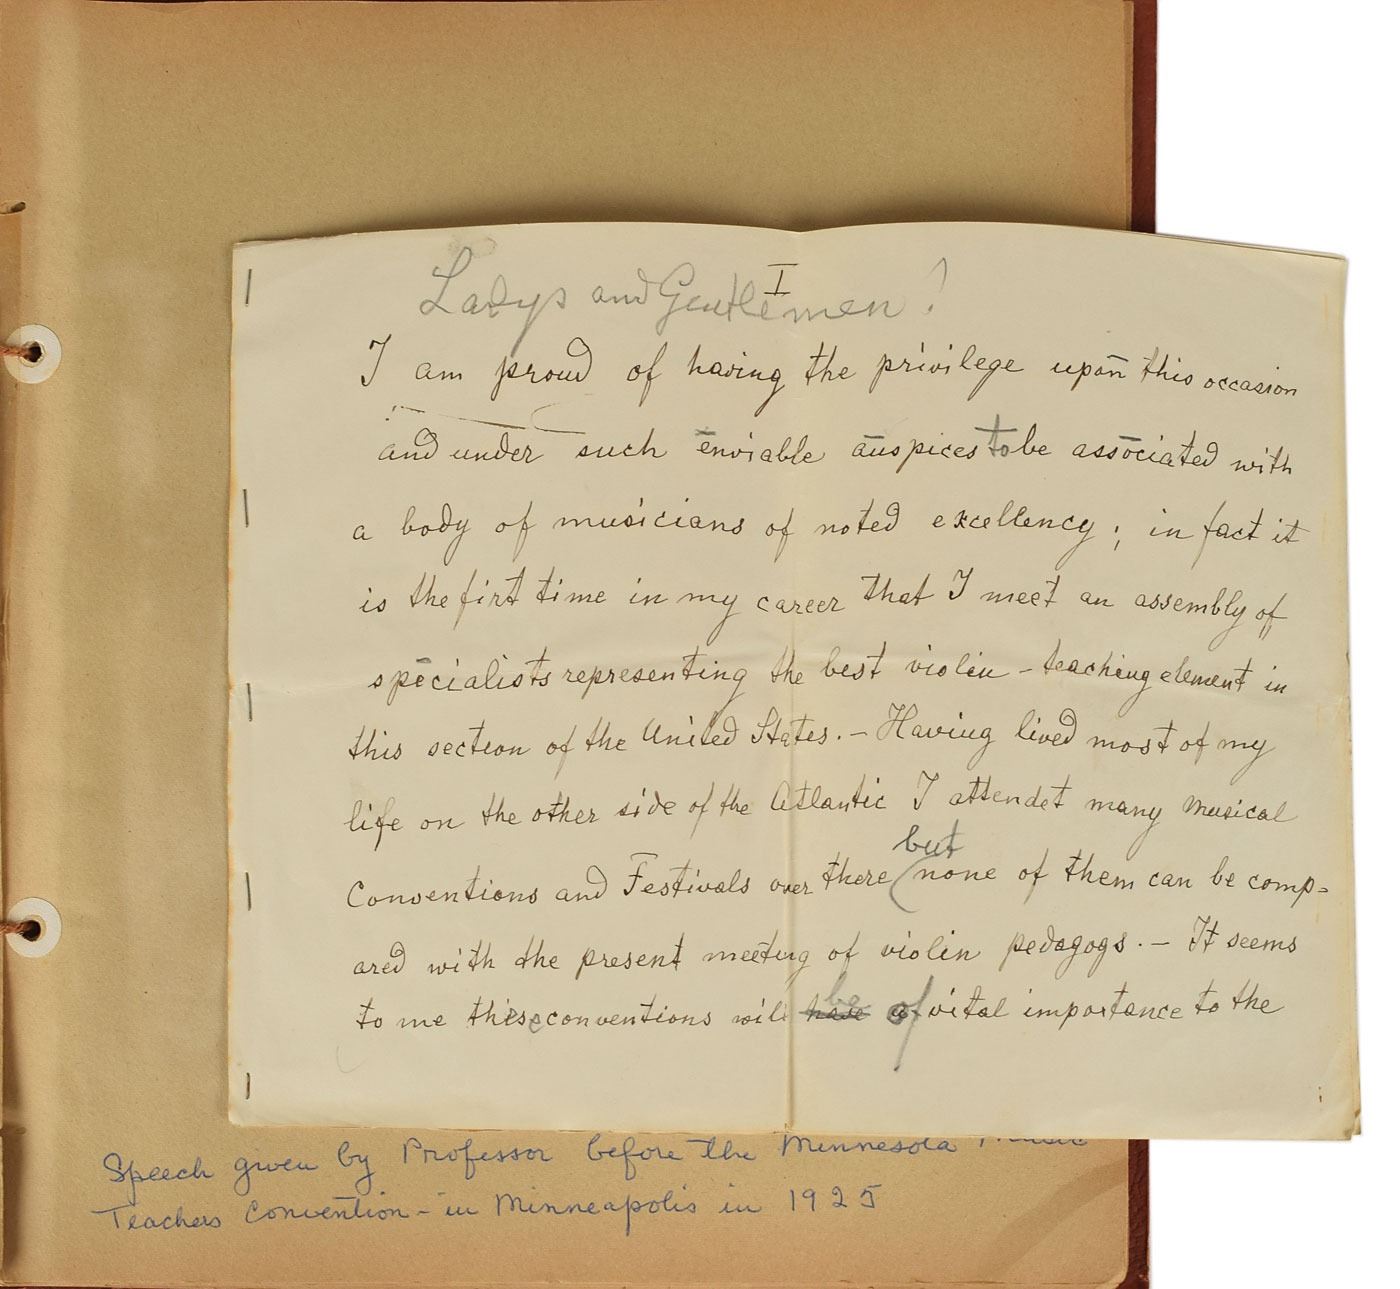 I
Ladys and Gentlemen!
I am proud of having the privilege upon this occasion
and under such enviable auspices to be associated with
a body of musicians of noted excellency; in fact it
is the first time in my career that I meet an assembly of
specialists representing the best violin - teaching element in
this section of the United States. - Having lived most of my
life on the other side of the Atlantic I attendet many musical
but
Conventions and Festivals over there none of them can be comp=
ared with the present meeting of violin pedagogs. - It seems
be of
to me these conventions will have a vital importance to the
Speech given by Professor before the Minnesota Music
Teachers Convention - in Minneapolis in 1925